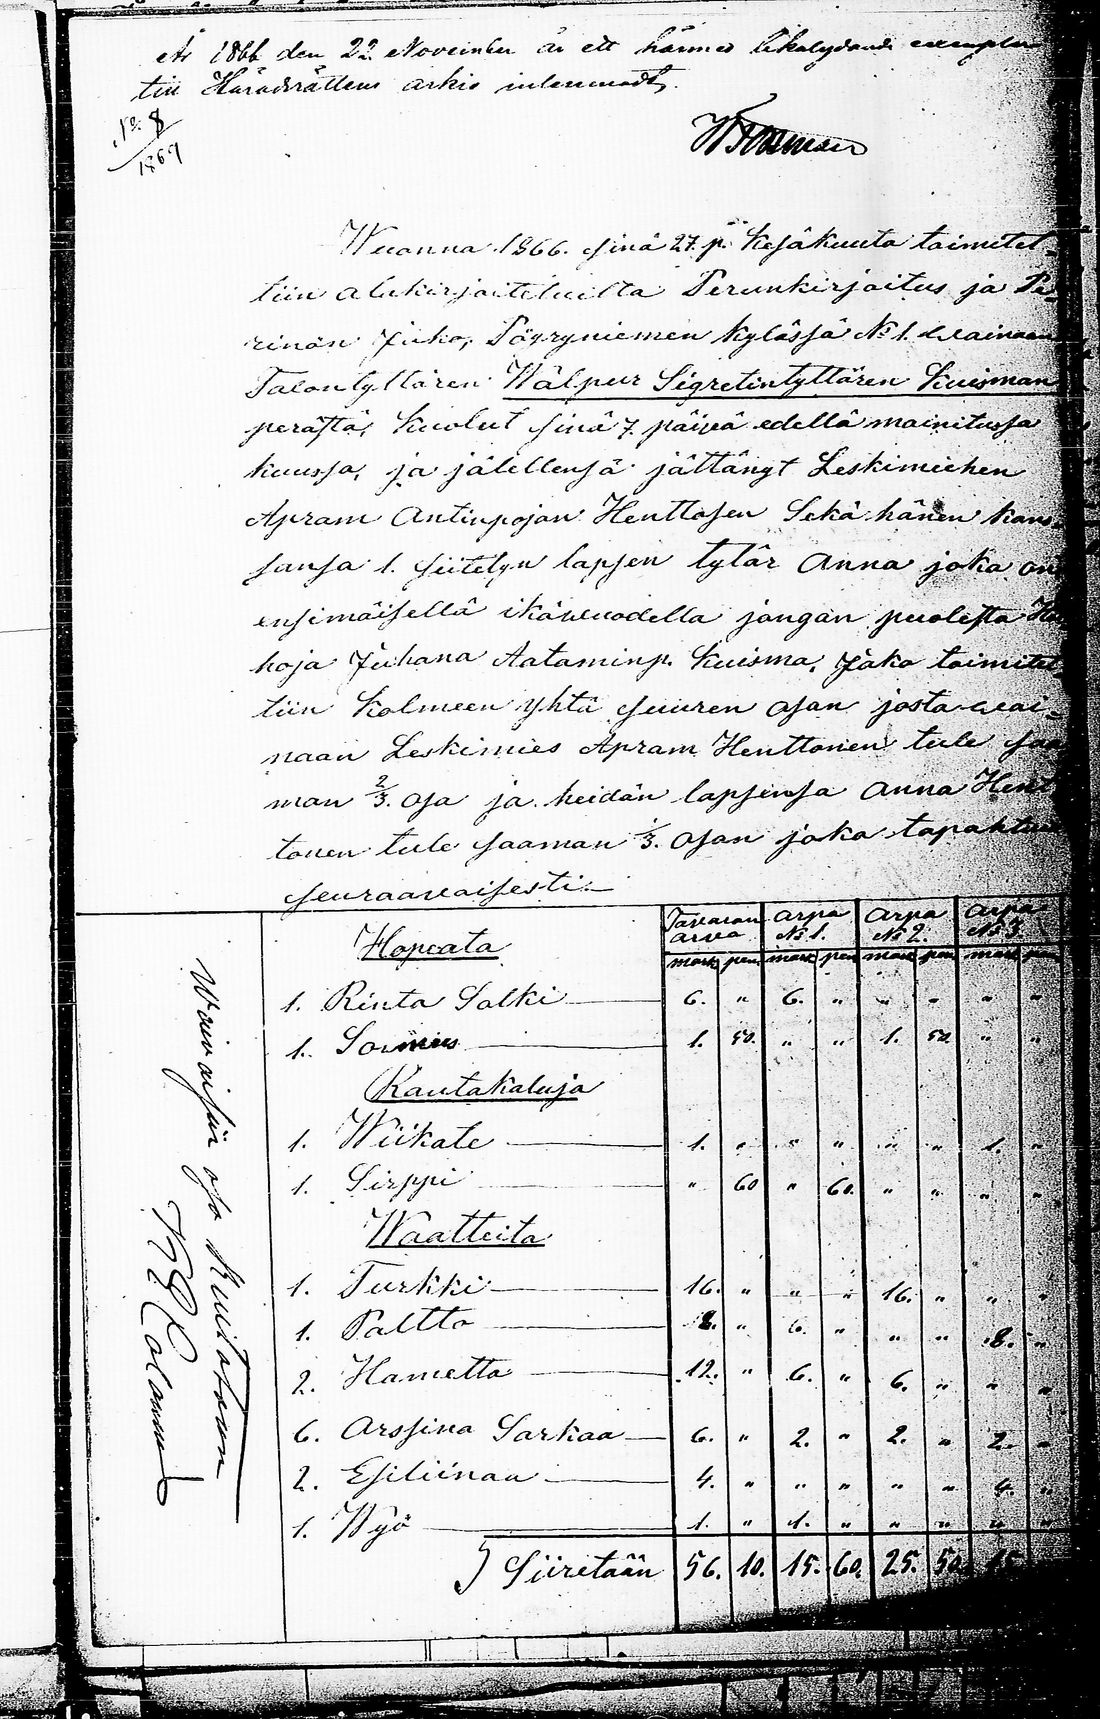 År 1866 den 22 November är ett härmed likalydande exemplar
till Häradsrättens arkiv inlemnadt,
No. 8
1867
Wuonna 1866. sinä 27. p. Kesäkuuta toimitet-
tiin alukirjoiteluilta Perunkirjoitus ja Pe-
rinön Juko, Pöyryniemen kylässä No 1. wainaan
Talontyttären Wälpur Sigretintyttären Kuisman
perästä, Kuolut sinä 7. päivä edellä mainitussa
kuussa, ja jälellensä jättänyt Leskimiehen
Apram Antinpojan Henttosen Sekä hänen kans-
sansa 1. siitetyn lapsen tytär Anna joka on
ensimäisellä ikäwuodella jongan puolesta Hu-
hoja Juhana Aataminp. Kuisma, Jako toimitet-
tiin Kolmeen yhtä suuren osan josta wai-
naan Leskimies Apram Henttonen tule saa-
man 2/3. osa ja heidän lapsensa Anna Hent-
tonen tule saaman 1/3. osan joka tapahtuu
seuraavaisesti.
Tavaran arvo | Arpa No 1. | Arpa No 2. | Arpa No 3.
mark | pen | mark | pen | mark | pen | mark | pen
Hopeata
1. Rinta Solki 6. " 6. " " " " "
1. Sormus 1. 50. " " 1. 50. " "
Rautakaluja
1. Wiikate 1. " " " " " 1. "
1. Sirppi " 60 " 60. " " " "
Waatteita
1. Turkki 16. " " " 16. " " "
1. Paltto 8. " 6. " " " 8. "
2. Hametta 12. " 6. " 6. " " "
6. Arssina Sarkaa 6. " 2. " 2. " 2. "
2. Esiliinaa 4. " " " " " 4. "
1. Wyö 1. " 1. " " " " "
Siiretään 56. 10. 15. 60. 25. 50. 15
Waivaisiin osa kuitataan